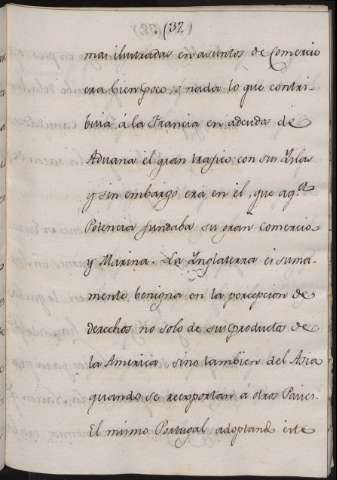 (37)
mas ilustradas en asuntos de Comercio
era bien poco, ô nada lo que contri-
buia â la Francia en adeudos de
Aduana el gran trafico con sus Yslas
y sin embargo era en êl, que aq.ª
Potencia fundaba su gran Comercio
y Marina. La Ynglaterra es suma-
mente benigna en la percepcion de
derechos no solo de sus productos de
la America sino tambien del Asia
quando se reexportan â otros Paises.
El mismo Portugal adoptando este